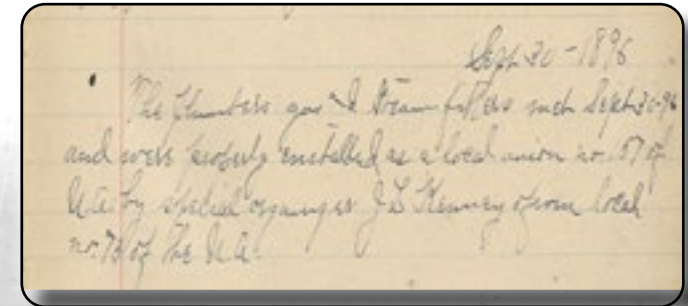 Sept 30-1896
The Plumbers gas & Steam fitters met Sept 30-96
and were properly installed as a local union no. 57 of
U.A. by special organizer J L Kenney from local
no. 78 of the U.A.